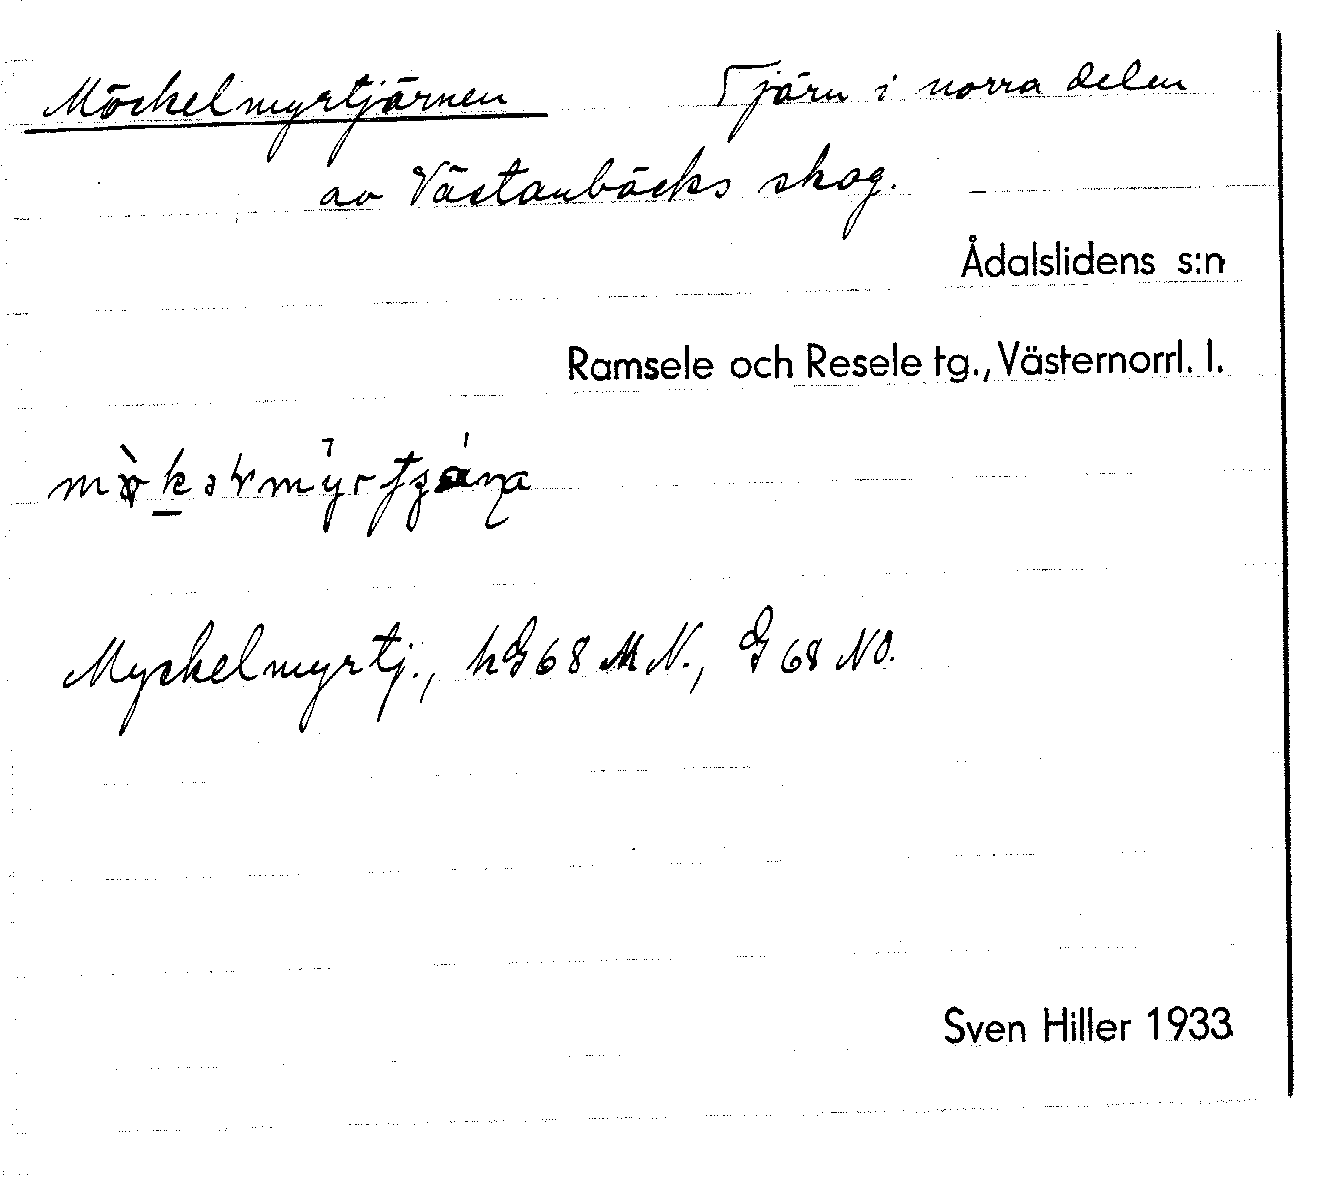 Möckelmyrtjärnen Tjärn i norra delen
av Västanbäcks skog.
Ådalslidens s:n
Ramsele och Resele tg., Västernorrl. l.
Myckelmyrtj., hG68 MN., G 68 NO.
Sven Hiller 1933